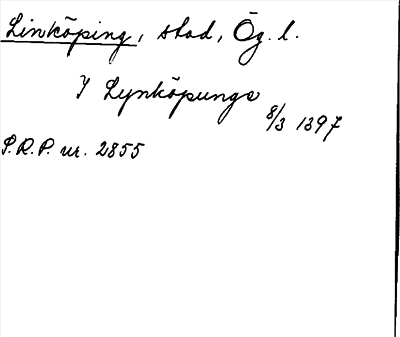 Linköping, stad, Ög. l.
I Lynköpunge
8/3 1397
S.R.P. nr. 2855